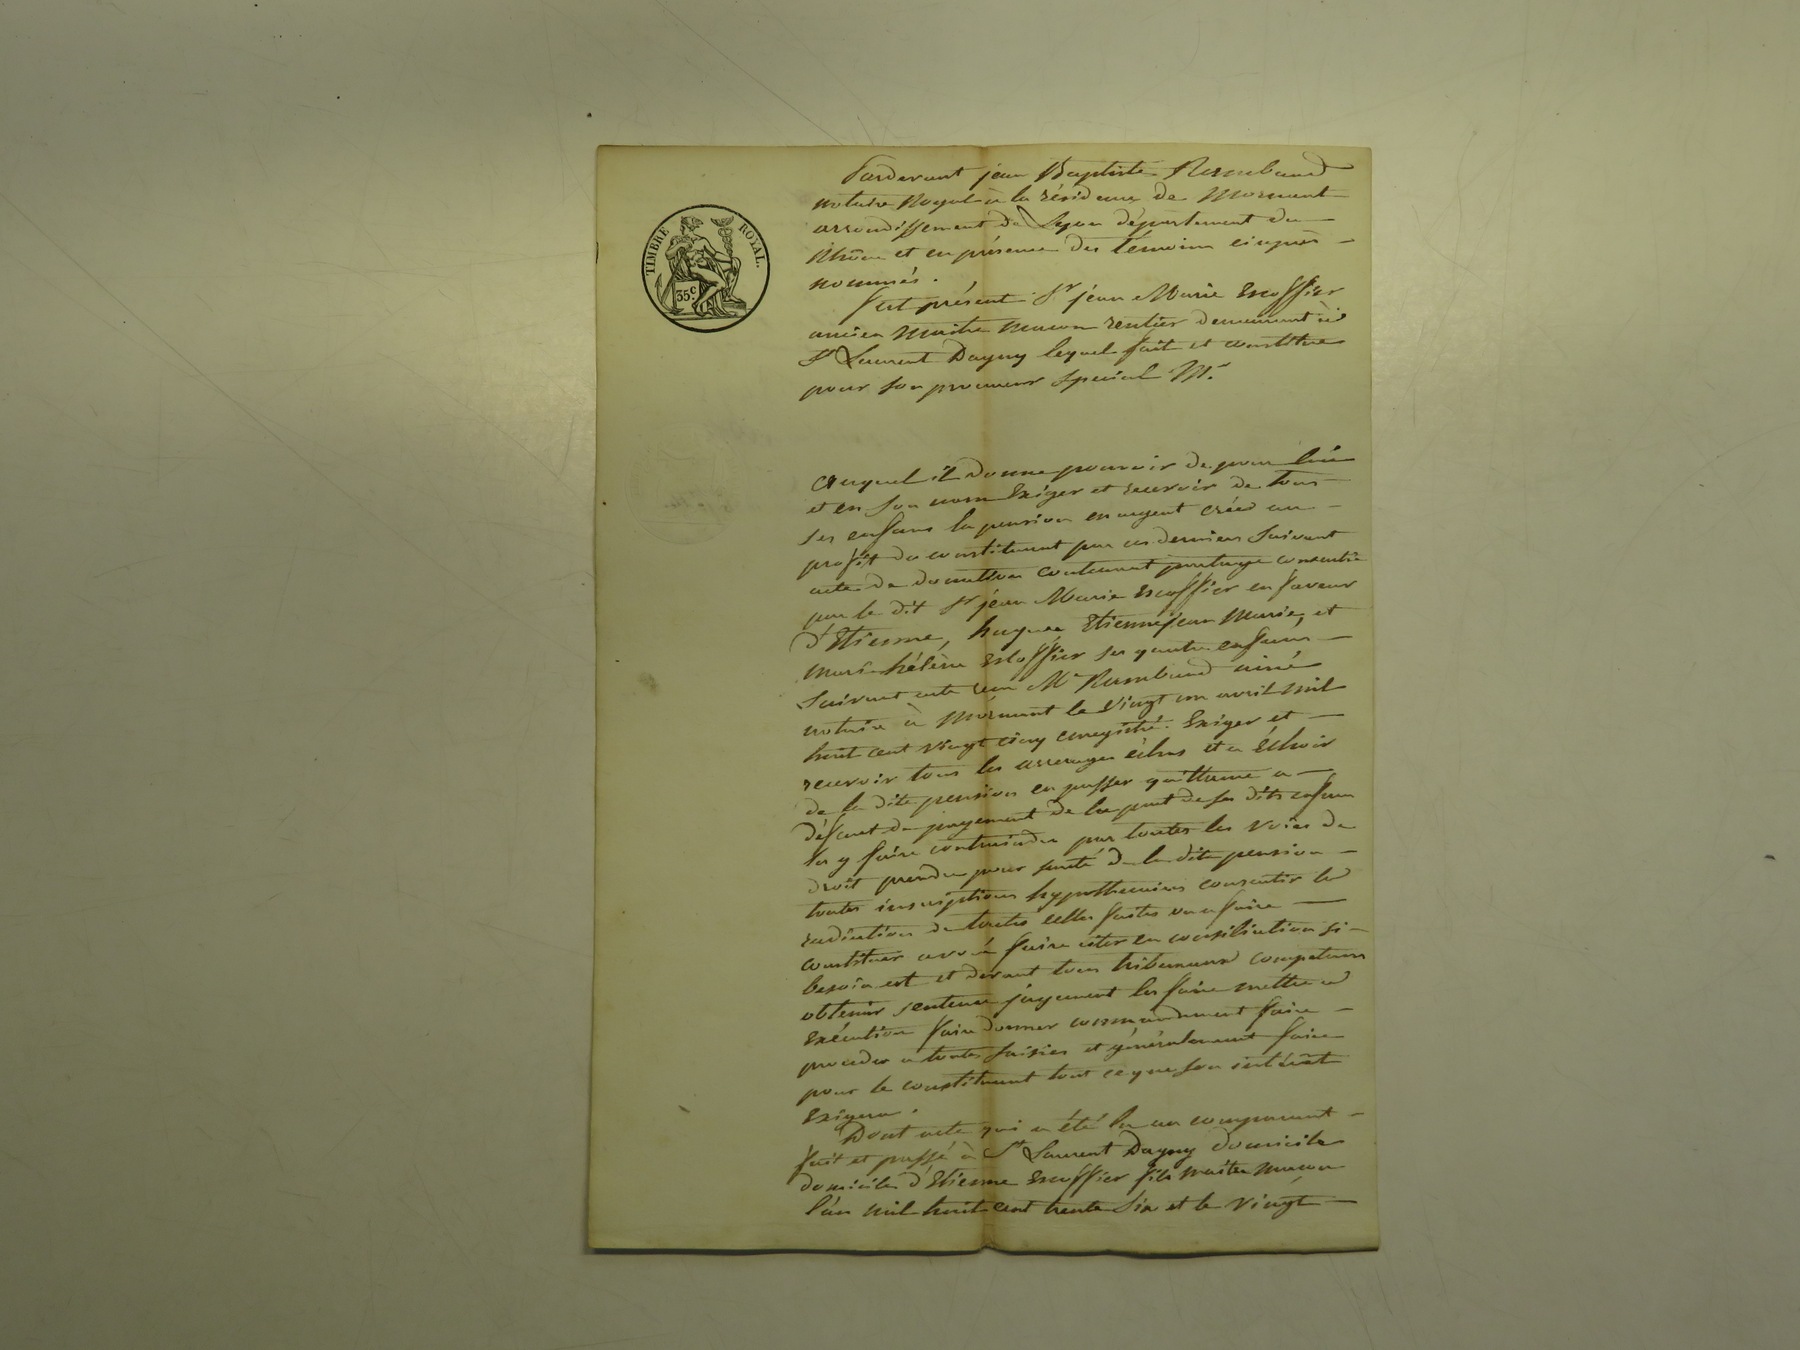 TIMBRE ROYAL.
35c
Pardevant jean Baptiste Rambaud
notaire Royal à la résidence de Mornant
arrondissement de Lyon département du
Rhône et en présence des témoins ci après
nommés.
fut présent Sr jean Marie Escoffier
ancien Maitre Macon rentier demeurant à
St Laurent Dagny lequel fait et constitue
pour son procureur spécial Mr
Auquel il donne pouvoir de pour lui
et en son nom Exiger et recevoir de tous
ses enfans la pension en argent créée au
profit du constituant par ces derniers Suivant
acte de donation contenant partage consentie
par le dit Sr jean Marie Escoffier en faveur
d'Etienne, hugues Etienne, jean Marie, et
marie hélène Escoffier ses quatre enfans
Suivant acte reçu Me Rambaud ainé
notaire à Mornant le vingt un avril mil
huit cent vingt cinq enregistré. Exiger et
recevoir tous les arrerages échus et a Echoir
de la dite pension en passer quittance a
défaut de payement de la part de ses dits enfans
les y faire contraindre par toutes les voies de
droit prendre pour sureté de la dite pension
toutes inscriptions hypothecaires consentir la
radiation de toutes celles faites ou a faire
constituer avoué faire citer en conciliation si
besoin est et devant tous tribunaux competans
obtenir sentence jugement les faire mettre a
Exécution faire donner commandement faire
proceder a toutes saisies et généralement faire
pour le constituant tout ce que son intérêt
Exigera.
Dont acte qui a été lu au comparant
fait et passé à St Laurent Dagny domicile
domicile d'Etienne Escoffier fils maitre macon
l'an mil huit cent trente Six et le vingt